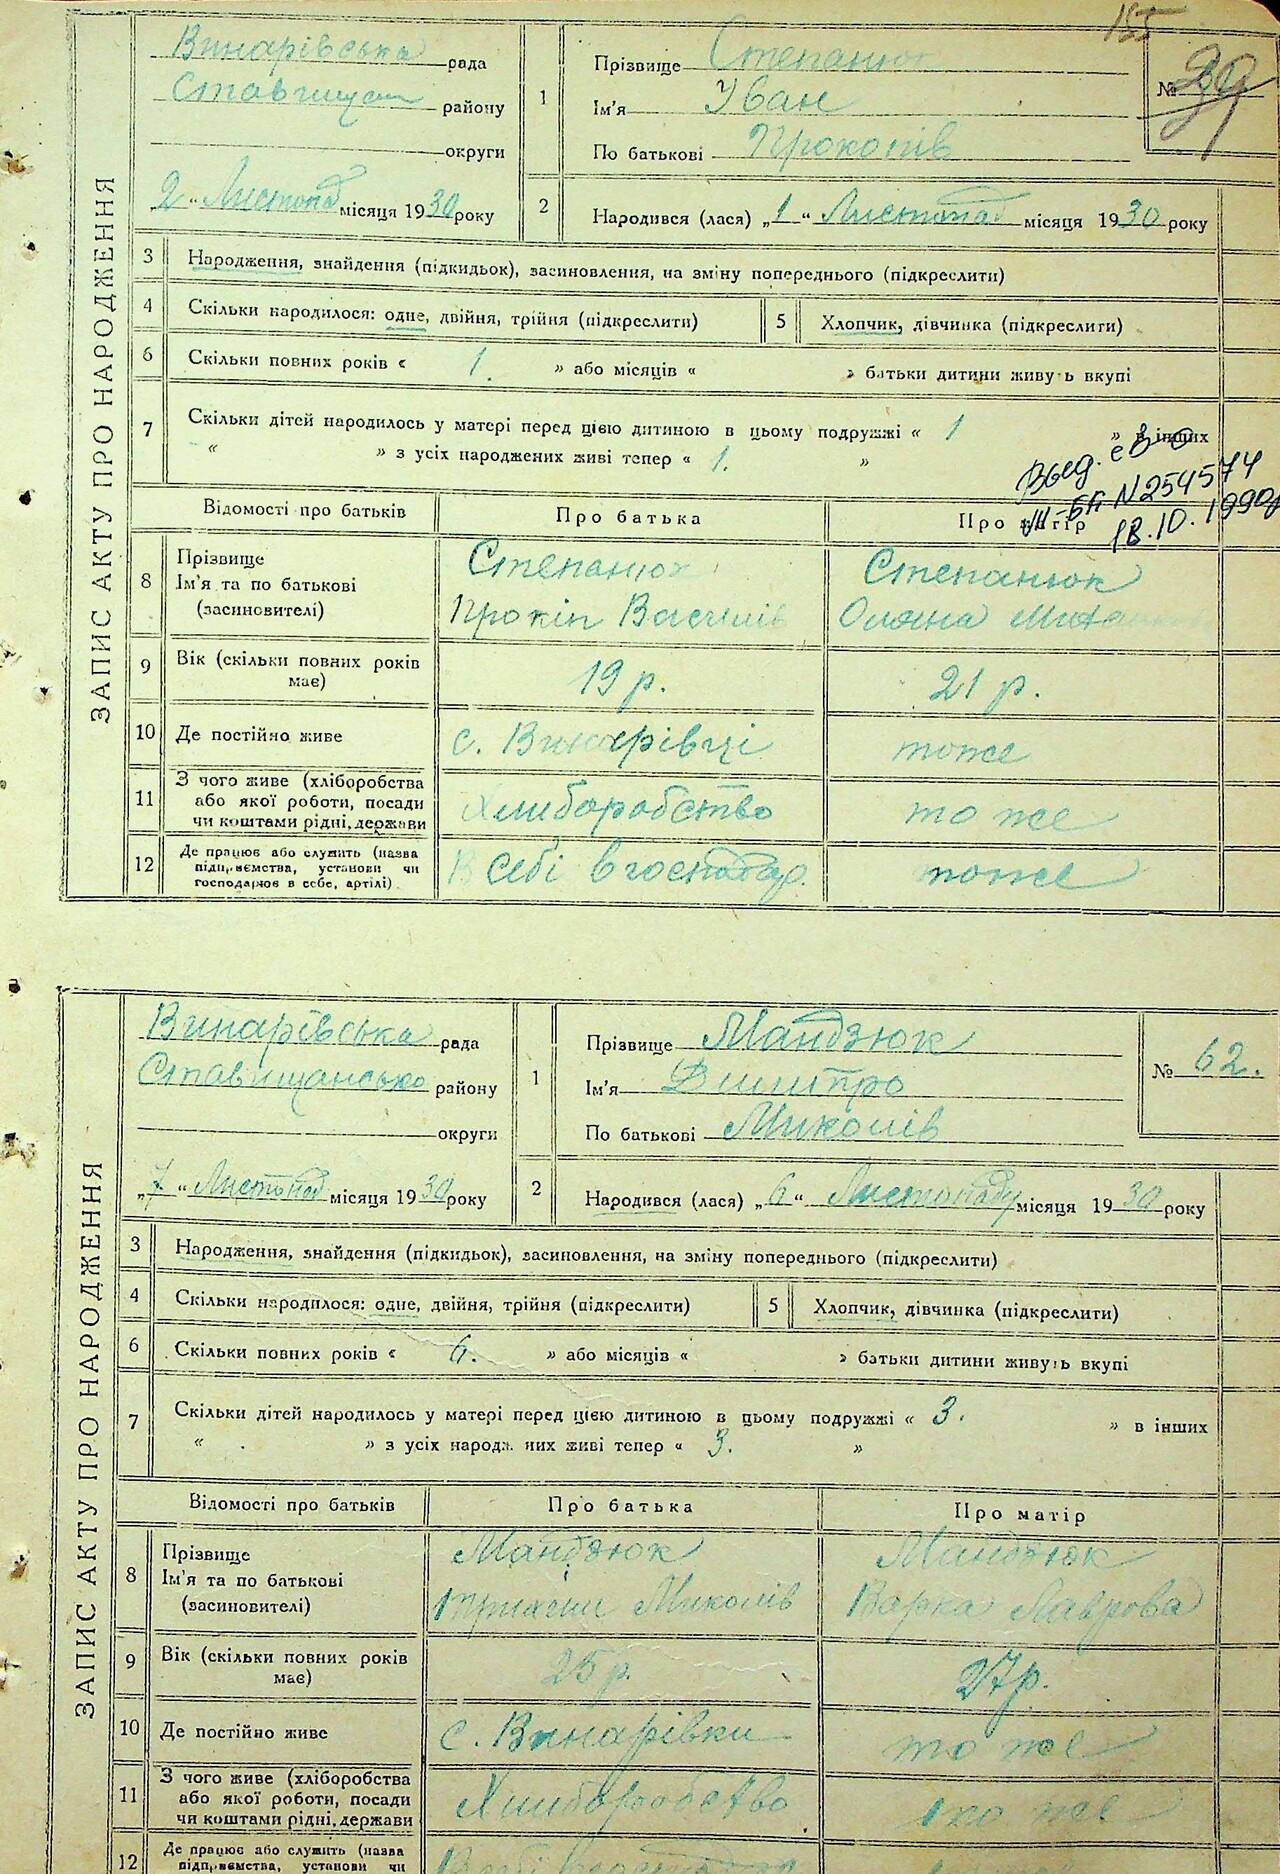 155
Винарівська рада
Ставищан району
округи
2 " Листопад місяця 1930 року
1
Прізвище Степанюк
Ім'я Іван
По батькові Прокопів
№ 39
2
Народився (лася) „ 1 " Листопад місяця 1930 року
ЗАПИС АКТУ ПРО НАРОДЖЕННЯ
3 Народження, знайдення (підкидьок), засиновлення, на зміну попереднього (підкреслити)
4 Скільки народилося: одне, двійня, трійня (підкреслити) 5 Хлопчик, дівчинка (підкреслити)
6 Скільки повних років « 1. » або місяців « » батьки дитини живуть вкупі
7 Скільки дітей народилось у матері перед цією дитиною в цьому подружжі « 1 » в інших
« » з усіх народжених живі тепер « 1. »
Выд. св о
VII-БК N 254574
18.10.1990
Відомості про батьків Про батька Про матір
8 Прізвище Степанюк Степанюк
Ім'я та по батькові
(засиновителі) Прокіп Василів Оляна
9 Вік (скільки повних років 19 р. 21 р.
має)
10 Де постійно живе с. Винарівці тоже
11 З чого живе (хліборобства
або якої роботи, посади Хлиборобство то же
чи коштами рідні, держави
12 Де працює або служить (назва
підприємства, установи чи В себі в господар. тоже
господарює в себе, артілі)
Винарівська рада
Ставищансько району
округи
„7 " Листопад місяця 1930 року
1
Прізвище Мандзюк
Ім'я Димитро
По батькові Миколів
№ 62.
2
Народився (лася) „ 6 " Листопаду місяця 1930 року
ЗАПИС АКТУ ПРО НАРОДЖЕННЯ
3 Народження, знайдення (підкидьок), засиновлення, на зміну попереднього (підкреслити)
4 Скільки народилося: одне, двійня, трійня (підкреслити) 5 Хлопчик, дівчинка (підкреслити)
6 Скільки повних років « 6. » або місяців « » батьки дитини живуть вкупі
7 Скільки дітей народилось у матері перед цією дитиною в цьому подружжі « 3. » в інших
« » з усіх народжених живі тепер « 3. »
Відомості про батьків Про батька Про матір
8 Прізвище Мандзюк Мандзюк
Ім'я та по батькові
(засиновителі) Миколів Варка Лаврова
9 Вік (скільки повних років 25 р. 27 р.
має)
10 Де постійно живе с. Винарівки то же
11 З чого живе (хліборобства
або якої роботи, посади Хлиборобство то же
чи коштами рідні, держави
12 Де працює або служить (назва
підприємства, установи чи